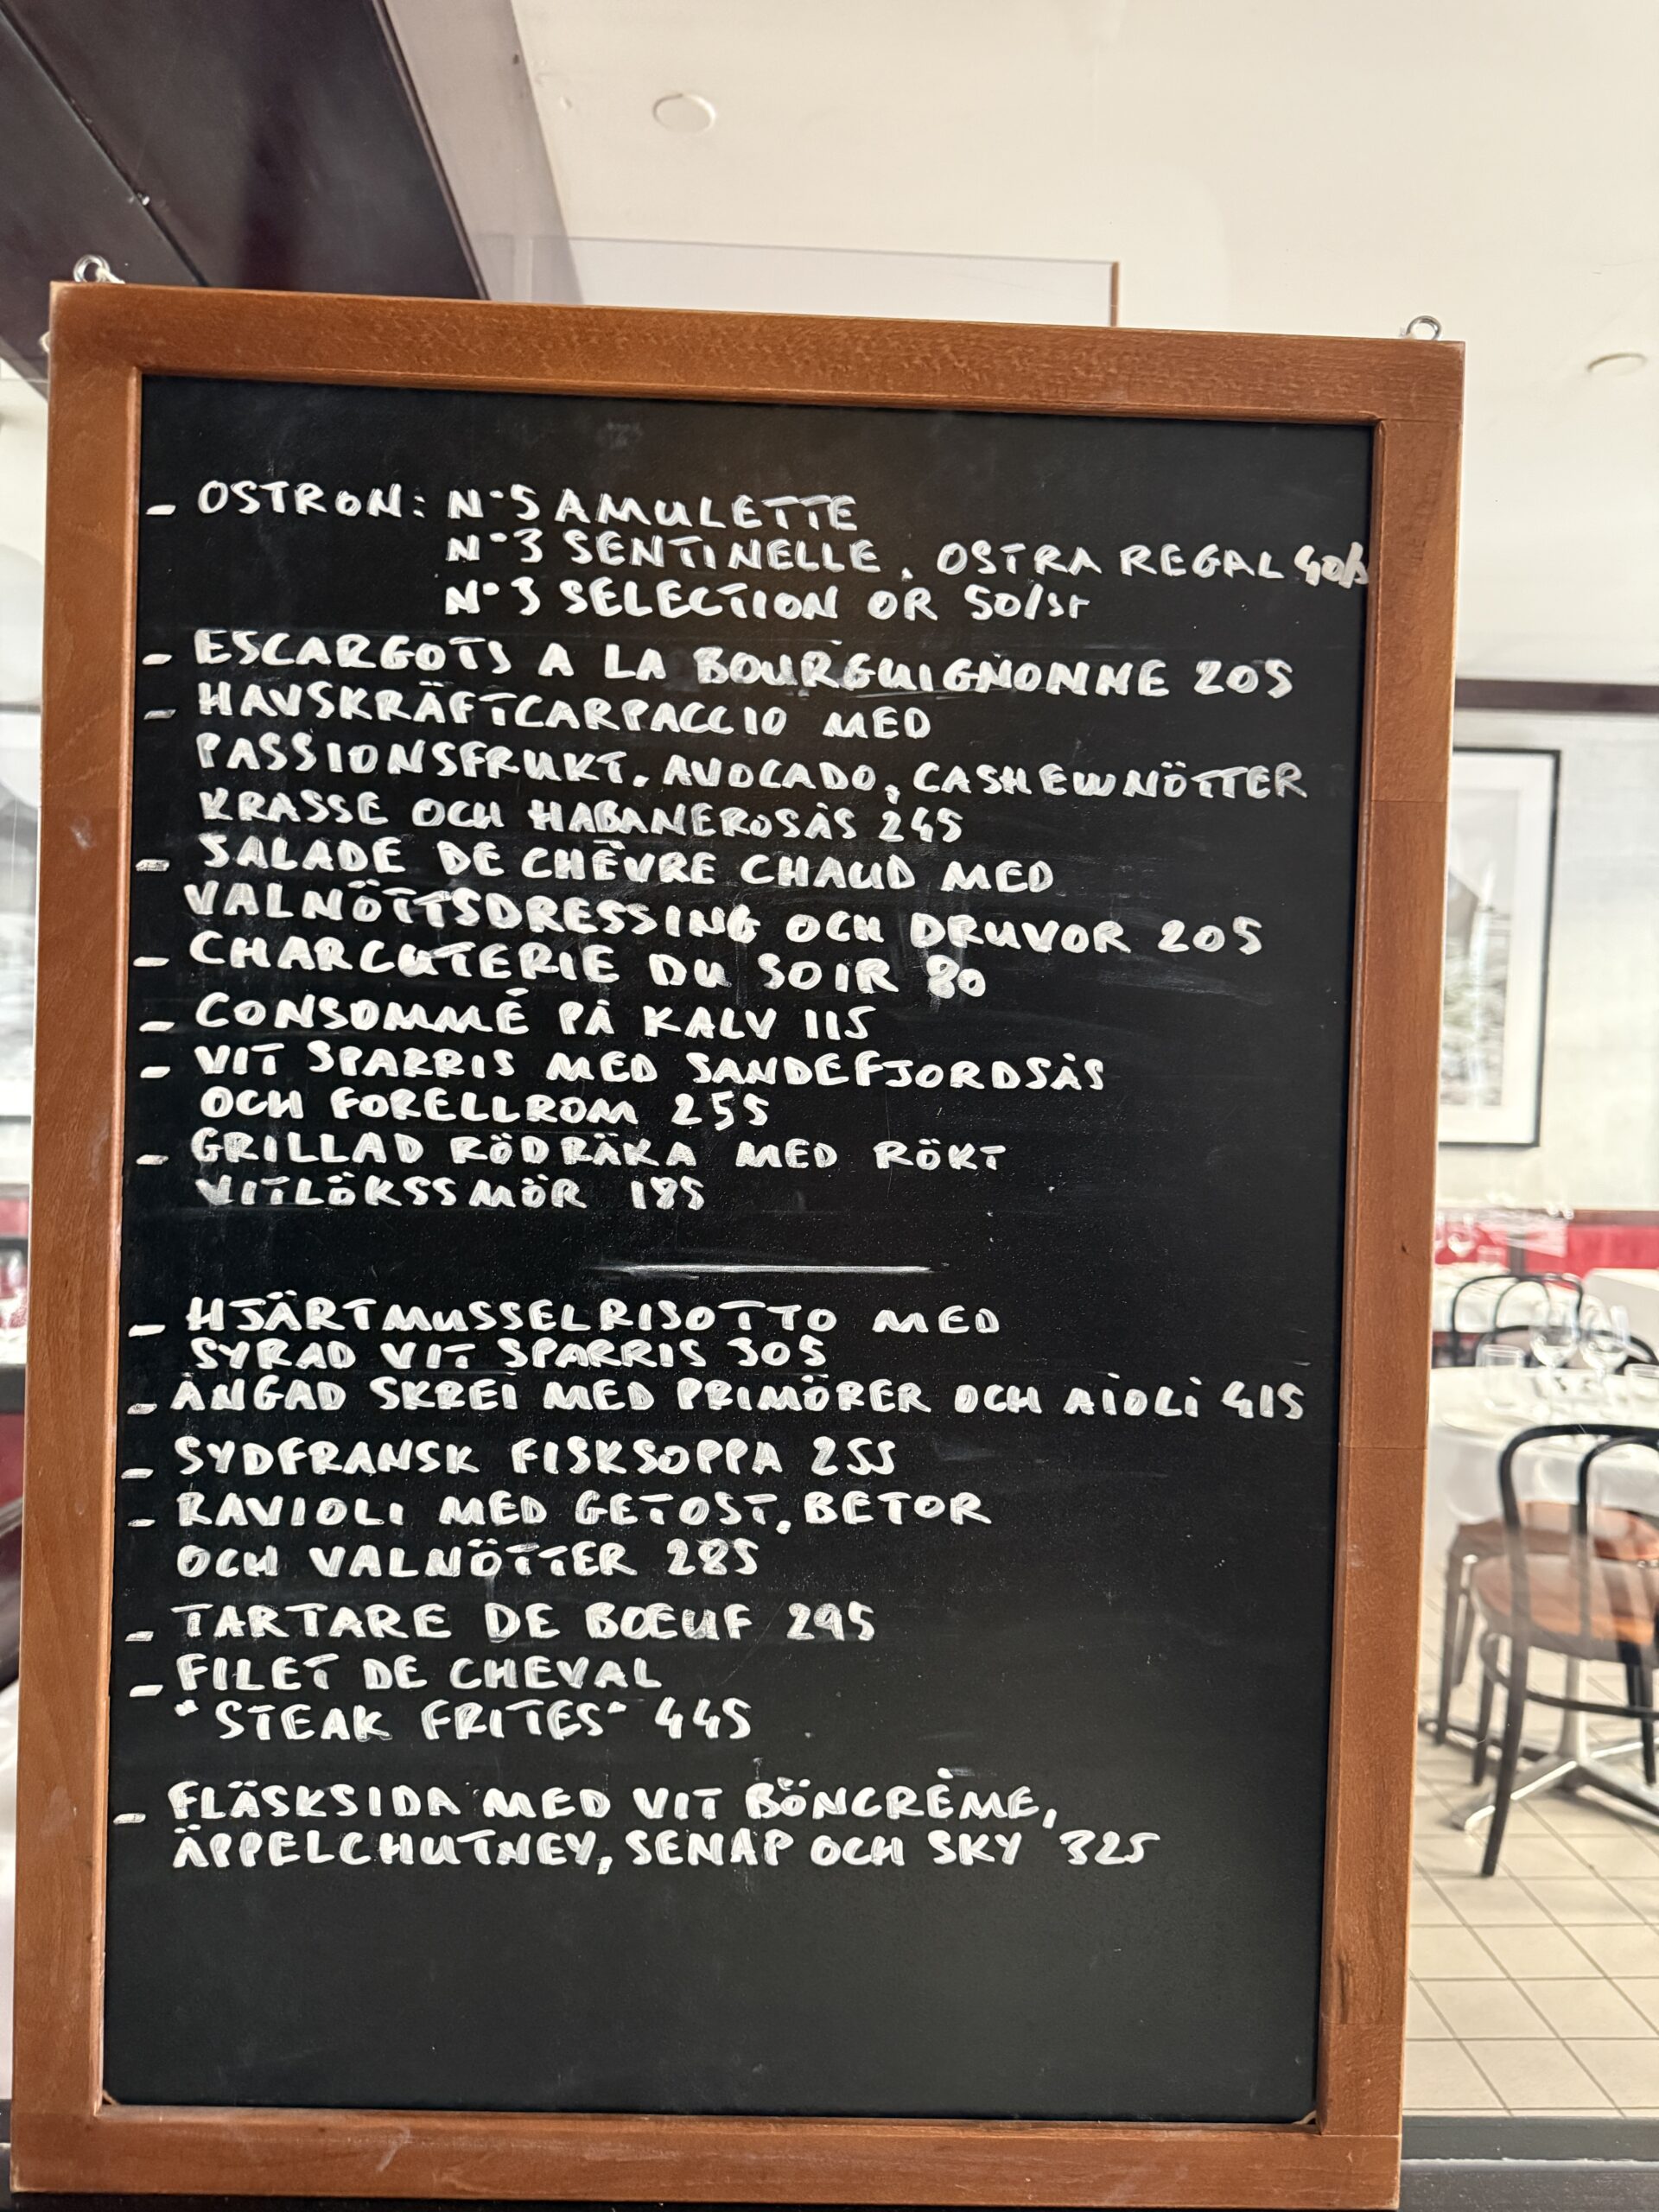 - OSTRON: N°5 AMULETTE
N°3 SENTINELLE, OSTRA REGAL 40/s
N°3 SELECTION OR 50/st
- ESCARGOTS A LA BOURGUIGNONNE 205
- HAVSKRÄFTCARPACCIO MED
PASSIONSFRUKT, AVOCADO, CASHEWNÖTTER
KRASSE OCH HABANEROSÅS 245
- SALADE DE CHÈVRE CHAUD MED
VALNÖTTSDRESSING OCH DRUVOR 205
- CHARCUTERIE DU SOIR 80
- CONSOMMÉ PÅ KALV 115
- VIT SPARRIS MED SANDEFJORDSÅS
OCH FORELLROM 255
- GRILLAD RÖDRÄKA MED RÖKT
VITLÖKSSMÖR 185
- HJÄRTMUSSELRISOTTO MED
SYRAD VIT SPARRIS 305
- ÅNGAD SKREI MED PRIMÖRER OCH AIOLI 415
- SYDFRANSK FISKSOPPA 255
- RAVIOLI MED GETOST, BETOR
OCH VALNÖTTER 285
- TARTARE DE BŒUF 295
- FILET DE CHEVAL
"STEAK FRITES" 445
- FLÄSKSIDA MED VIT BÖNCRÈME,
ÄPPELCHUTNEY, SENAP OCH SKY 325